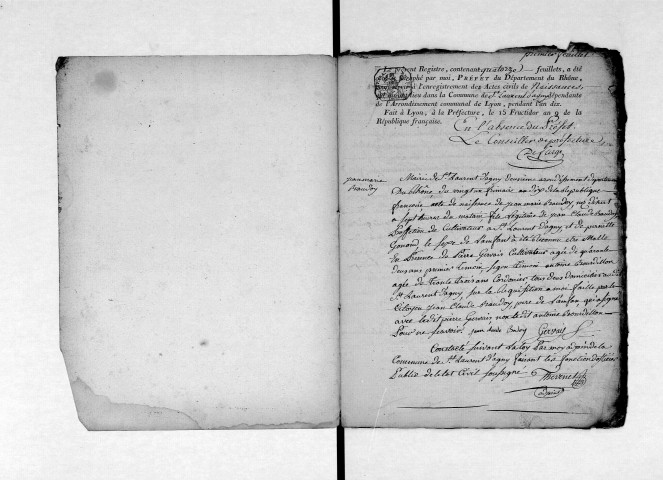 premier feuillet
Le présent Registre, contenant quatorze feuillets, a été
paraphé par moi, PRÉFET du Département du Rhône,
pour servir à l'enregistrement des Actes civils de Naissances,
qui auront lieu dans la Commune de St Laurent d'agny dépendante
de l'Arrondissement communal de Lyon, pendant l'an dix.
Fait à Lyon, à la Préfecture, le 15 Fructidor an 9 de la
République française.
En l'absence du Préfet.
Le Conseiller de préfecture
jeanmarie
Baudoy
Mairie de St Laurent Dagny deuxieme arondissement departement
Du Rhône du vingtux frimaire an Dix de la Republique
francoise acte de naissance de jean marie Baudoy né
a sept heures du matin fils legitime de jean Claude Baudoy
proffetion de Cultivateur a St Laurent Dagny et de
le sexe de lanfant a été Reconnu être Malle
En presence de Pierre Gervais Cultivateur agée de quarante
deux ans premier temoin segon temoin antoine
agée de trante trois ans Cordonier tous deux domiciliée au dit
St Laurent Dagny sur la Requisition a moi faitte par le
Citoyen jean Claude Baudoy pere de lanfan qui a signé
avec le dit pierre Gervais non le dit antoine
pour ne savoir jean claude Baudoy Gervais
Constaté suivant la loy par moy adjoin de la
Commune de St Laurent Dagny faisant les fonction dofficier
Public de letat Civil soussigné Thevenet
adjoint